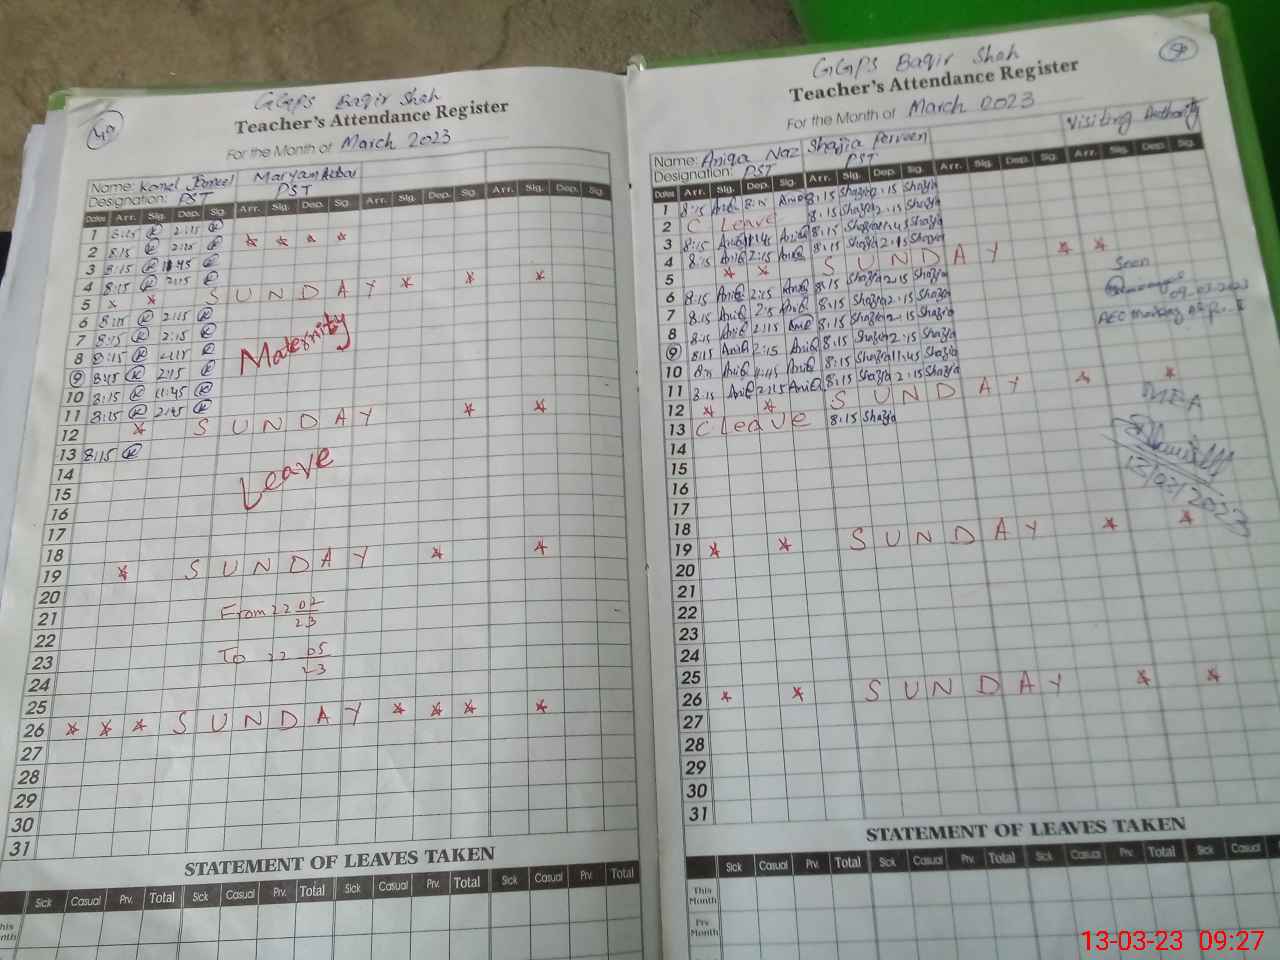 GGPS Baqir Shah
Teacher's Attendance Register
For the Month of March 2023
Name: Komel Maryam Akbar
Designation: PST PST
Dates Arr. Sig. Dep. Sig. Arr. Sig. Dep. Sig. Arr. Sig. Dep. Sig. Arr. Sig. Dep. Sig.
1 8:15 2:15
2 8:15 2:15 * * * *
3 8:15 11:45
4 8:15 2:15
5 * * SUNDAY * * *
6 8:15 2:15
7 8:15 2:15
8 8:15 2:15
9 8:15 2:15
Maternity
10 8:15 11:45
11 8:15 2:45
12 * SUNDAY * *
13 8:15
14
Leave
15
16
17
18
19 * SUNDAY * *
20
21 From 22 02/23
22
23 To 22 05/23
24
25
26 * * * SUNDAY * * * *
27
28
29
30
31
STATEMENT OF LEAVES TAKEN
Sick Casual Prv. Total Sick Casual Prv. Total Sick Casual Prv. Total Sick Casual Prv. Total
This Month
GGPS Baqir Shah
Teacher's Attendance Register
For the Month of March 2023
Name: Aniqa Naz Shazia Perveen Visiting Authority
Designation: PST PST
Dates Arr. Sig. Dep. Sig. Arr. Sig. Dep. Sig. Arr. Sig. Dep. Sig. Arr. Sig. Dep. Sig.
1 8:15 AniQ 2:15 AniQ 8:15 Shazia 2:15 Shazia
2 C Leave 8:15 Shazia 2:15 Shazia
3 8:15 AniQ 11:45 AniQ 8:15 Shazia 11:45 Shazia
4 8:15 AniQ 2:15 AniQ 8:15 Shazia 2:15 Shazia
5 * * SUNDAY * *
6 8:15 AniQ 2:15 AniQ 8:15 Shazia 2:15 Shazia
Seen
7 8:15 AniQ 2:15 AniQ 8:15 Shazia 2:15 Shazia
09.03.2023
8 8:15 AniQ 2:15 AniQ 8:15 Shazia 2:15 Shazia
AEO
9 8:15 AniQ 2:15 AniQ 8:15 Shazia 2:15 Shazia
10 8:15 AniQ 11:45 AniQ 8:15 Shazia 11:45 Shazia
11 8:15 AniQ 2:15 AniQ 8:15 Shazia 2:15 Shazia
12 * * SUNDAY * *
MEA
13 C Leave 8:15 Shazia
14
15
13/03/2023
16
17
18
19 * * SUNDAY * *
20
21
22
23
24
25
26 * * SUNDAY * *
27
28
29
30
31
STATEMENT OF LEAVES TAKEN
Sick Casual Prv. Total Sick Casual Prv. Total Sick Casual Prv. Total Sick Casual
This Month
Prv Month
13-03-23 09:27